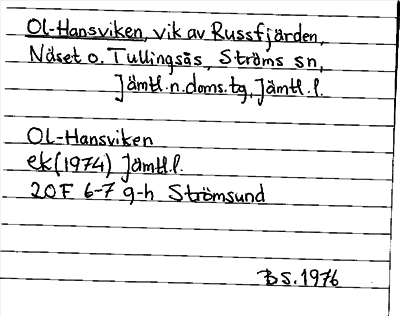 Ol-Hansviken, vik av Russfjärden,
Näset o. Tullingsås, Ströms sn,
Jämtl.n.doms.tg, Jämtl.l.
Ol-Hansviken
ek(1974) Jämtl.l.
20F 6-7 g-h Strömsund
BS.1976